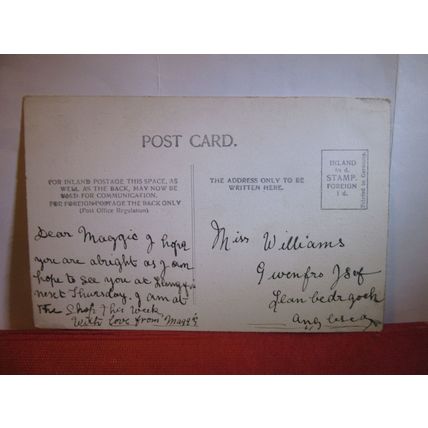 POST CARD.
FOR INLAND POSTAGE THIS SPACE, AS
WELL AS THE BACK, MAY NOW BE
USED FOR COMMUNICATION.
FOR FOREIGN POSTAGE THE BACK ONLY
(Post Office Regulation)
THE ADDRESS ONLY TO BE
WRITTEN HERE.
INLAND
½ d.
STAMP.
FOREIGN
1 d.
Printed in Germany.
Dear Maggie I hope
you are alright as I am
hope to see you at
next Thursday. I am at
the Shop this Week
With love from Maggie
Miss Williams
Gwenfro Isaf
Llanbedrgoch
Anglesea